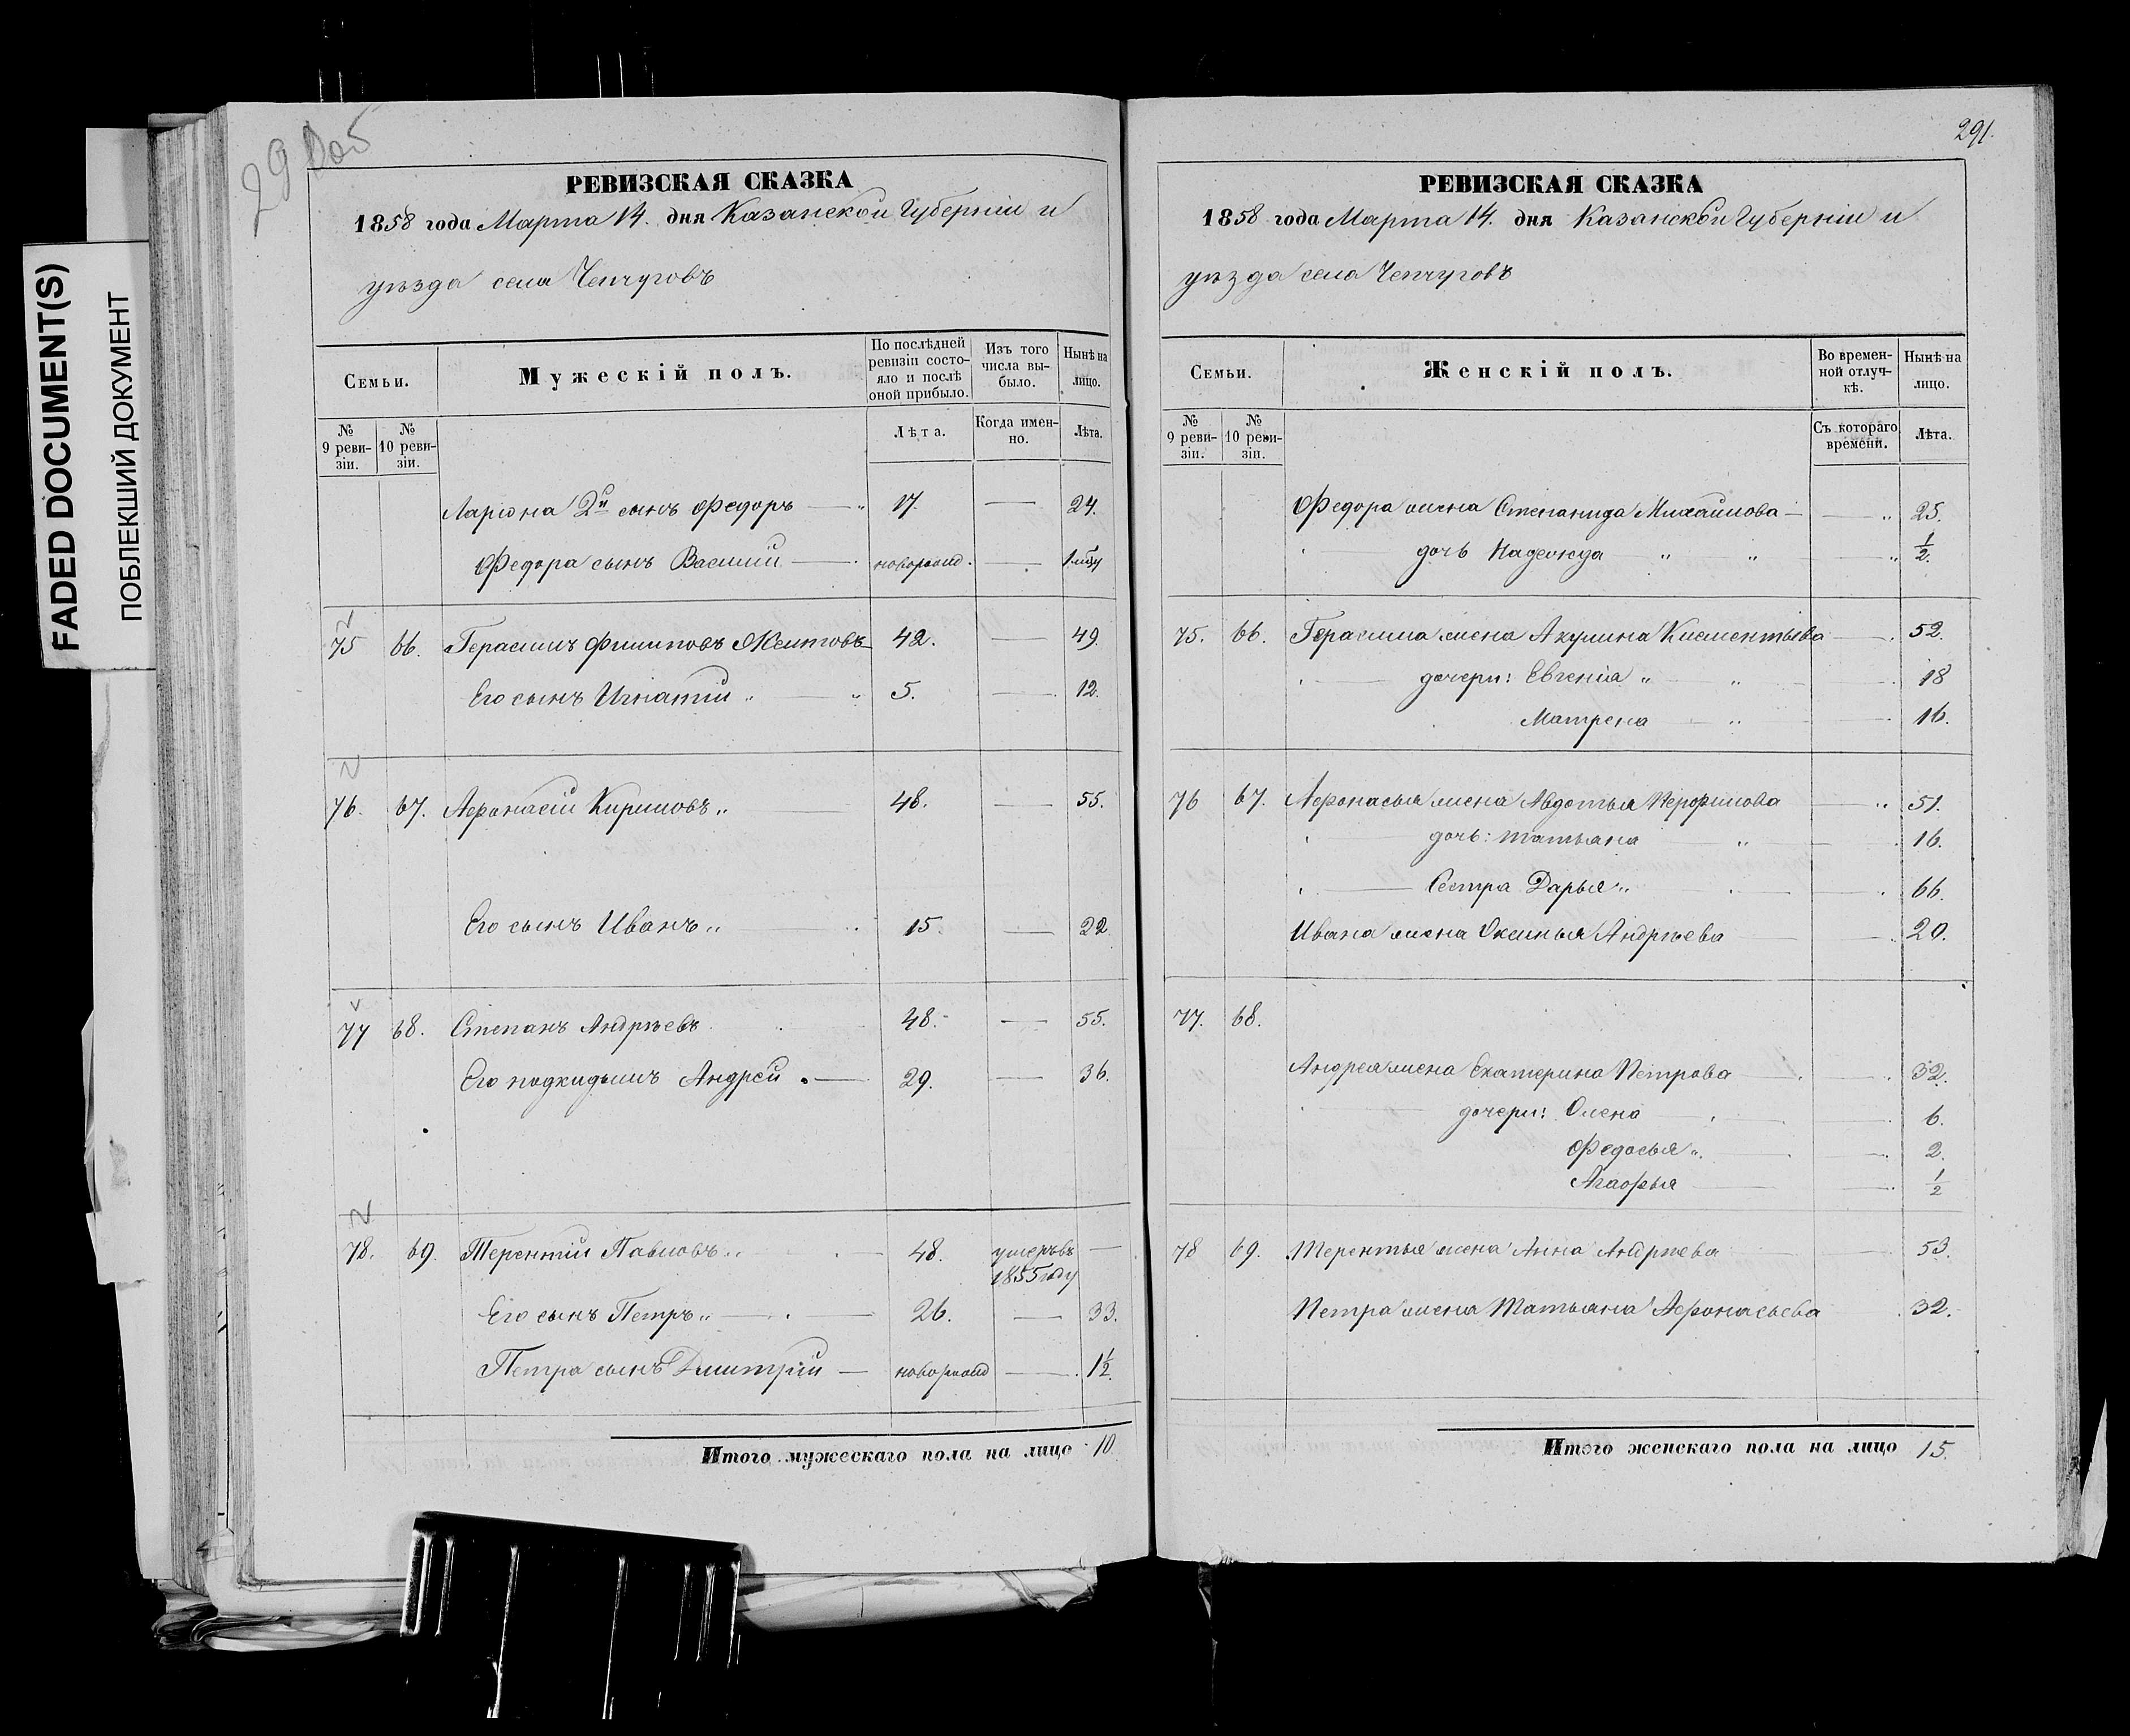 FADED DOCUMENT(S)
ПОБЛЕКШИЙ ДОКУМЕНТ
290 об
РЕВИЗСКАЯ СКАЗКА
1858 года Марта 14. дня Казанской Губерніи и
уѣзда села Чепчуговъ
Семьи.
Мужескій полъ.
По послѣдней ревизіи состояло и послѣ оной прибыло.
Изъ того числа выбыло.
Нынѣ на лицо.
№ 9 ревизіи.
№ 10 ревизіи.
Лѣта.
Когда именно.
Лѣта.
Ларіона 2й сынъ Федоръ 17. 24.
Федора сынъ Василій новорожд.
75 66. Герасимъ Филиповъ 42. 49.
Его сынъ Игнатій 5. 12.
76. 67. Афонасій Кириловъ 48. 55.
Его сынъ Иванъ 15. 22
77 68. Степанъ Андрѣевъ 48. 55.
Его подкидышъ Андрей 29. 36.
78. 69. Терентій Павловъ 48. умеръ въ 1855 году
Его сынъ Петръ 26. 33.
Петра сынъ Дмитрій новорожд 1½.
Итого мужескаго пола на лицо 10
291.
РЕВИЗСКАЯ СКАЗКА
1858 года Марта 14. дня Казанской Губерніи и
уѣзда села Чепчуговъ
Семьи.
Женскій полъ.
Во временной отлучкѣ.
Нынѣ на лицо.
№ 9 ревизіи.
№ 10 ревизіи.
Съ котораго времени.
Лѣта.
Федора жена Степанида Михайлова 25.
дочь Надежда ½.
75. 66. Герасима жена Акулина Клементьева 52.
дочери: Евгенія 18
Матрена 16.
76 67. Афонасья жена Авдотья Перфилова 51.
дочь: Татьяна 16.
Сестра Дарья 66.
Ивана жена Оксинья Андрѣева 20.
77. 68.
Андрея жена Екатерина Петрова 32.
дочери: Олена 6.
Федосья 2.
Агафья ½
78 69. Терентья жена Анна Андрѣева 53.
Петра жена Татьяна Афонасьева 32.
Итого женскаго пола на лицо 15.